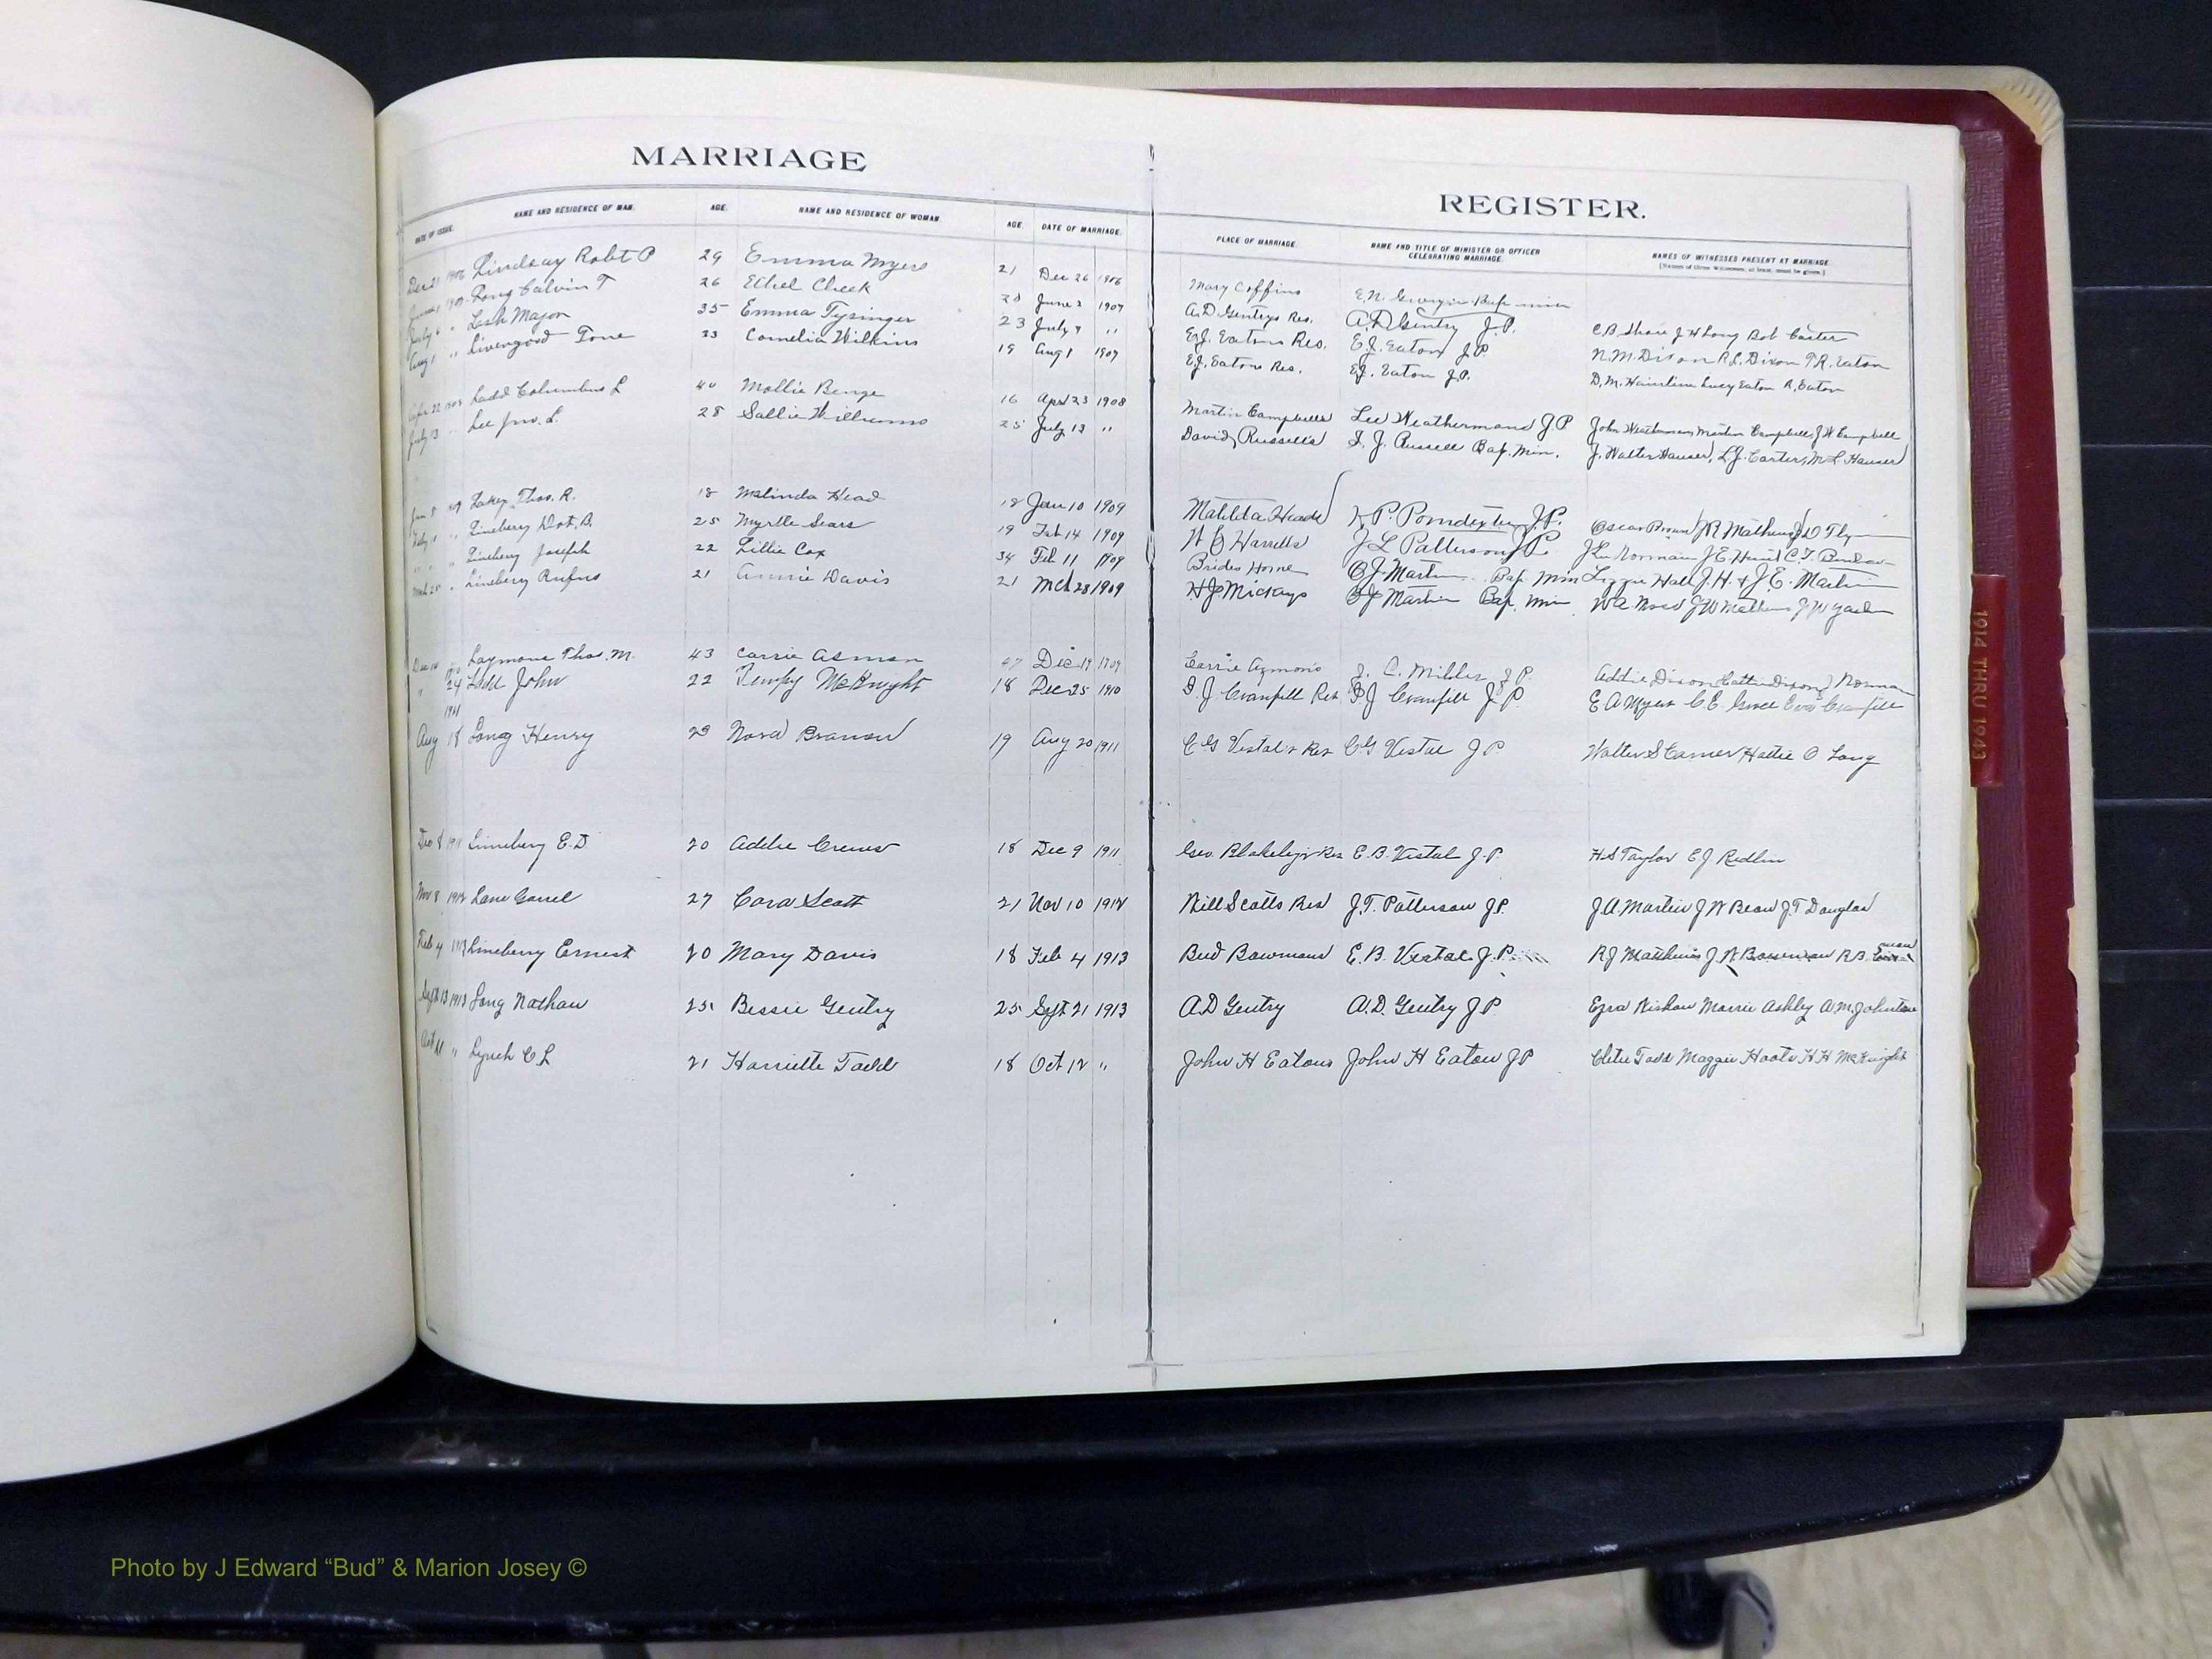 MARRIAGE
REGISTER.
DATE OF ISSUE. NAME AND RESIDENCE OF MAN. AGE. NAME AND RESIDENCE OF WOMAN. AGE. DATE OF MARRIAGE. PLACE OF MARRIAGE. NAME AND TITLE OF MINISTER OR OFFICER CELEBRATING MARRIAGE. NAMES OF WITNESSES PRESENT AT MARRIAGE.
[Names of three witnesses, at least, must be given.]
Dec 21 1906 Lindsay Robt P 29 Emma Myers 21 Dec 26 1906 Mary Coffins E.N. Bap min
1907 Long Calvin T 26 Ethel Cheek June 2 1907 A.D. Gentrys Res. A.D. Gentry J.P. C.B. Shore J H Long Bob Carter
July 6 " Lash Major 35 Emma Tysinger 23 July 7 " E.J. Eatons Res. E.J. Eaton J.P. N.M. Dixon R.L. Dixon T.R. Eaton
Aug 1 " Livengood 23 Cornelia Wilkins 19 Aug 1 1907 E.J. Eatons Res. E.J. Eaton J.P. D.M. Lucy Eaton R. Eaton
Apr 22 1908 Ladd Columbus L 40 Mollie Benge 16 Apr 23 1908 Martin Campbells Lee Weathermand J P John Martin Campbell, J W Campbell
July 13 " Lee Jno. L. 28 Sallie Williams 25 July 13 " David Russells Russell Bap. Min. J. Walter Hauser, L.J. Carter, M L Hauser
Jan 8 Lakey Thos. R. 18 Malinda Head 18 Jan 10 1909 Matilda Heads Poindexter J.P. Oscar Brown J R Mathews
" Lineberry 25 Myrtle Sears 19 Feb 14 1909 Harrells J L Patterson J P. Norman J E
" " Lineberry Joseph 22 Lillie Cox 34 Feb 11 1909 Brides Home Martin Bap. Min Lizzie Hall J. H. & J. E. Martin
" Lineberry Rufus 21 Annie Davis 21 Mch 28 1909 J Martin Bap. Min
Laymons Thos. M. 43 Carrie Asmon 47 Dec 19 1909 Carrie Aymons C. Miller J P. Addie Dixon Hattie Dixon Norman
" 24 1910 Ladd John 22 Tempy McKnight 18 Dec 25 1910 J Cranfill Res J Cranfill J P. E A Myers C E
1911
Aug 18 Long Henry 23 Nora Branon 19 Aug 20 1911 C G Vestal's Res C G Vestal J P Walter S Carner Hattie O Long
Dec 8 1911 Linebery E. D 20 Addie Crews 18 Dec 9 1911 Geo. Blakeleys Res E. B. Vestal J. P. H. S Taylor E J.
Nov 8 1912 Lane 27 Cora Scott 21 Nov 10 1912 Will Scotts Res J. T. Patterson J P. J. A. Martin J W Bean J. T Douglas
Feb 4 1913 Lineberry Ernest 20 Mary Davis 18 Feb 4 1913 Bud Bowmans E. B. Vestal J. P. R J Matthews J A Bowman R B.
Sept 13 1913 Long Nathan 25 Bessie Gentry 25 Sept 21 1913 A D Gentry A. D. Gentry J P Ezra Ashley A. M. Johnson
Oct 11 " Lynch C L 21 Harriette Todd 18 Oct 12 " John H Eatons John H Eaton J P Todd Maggie Hoots H H McKnight
1914 THRU 1943
Photo by J Edward “Bud” & Marion Josey ©